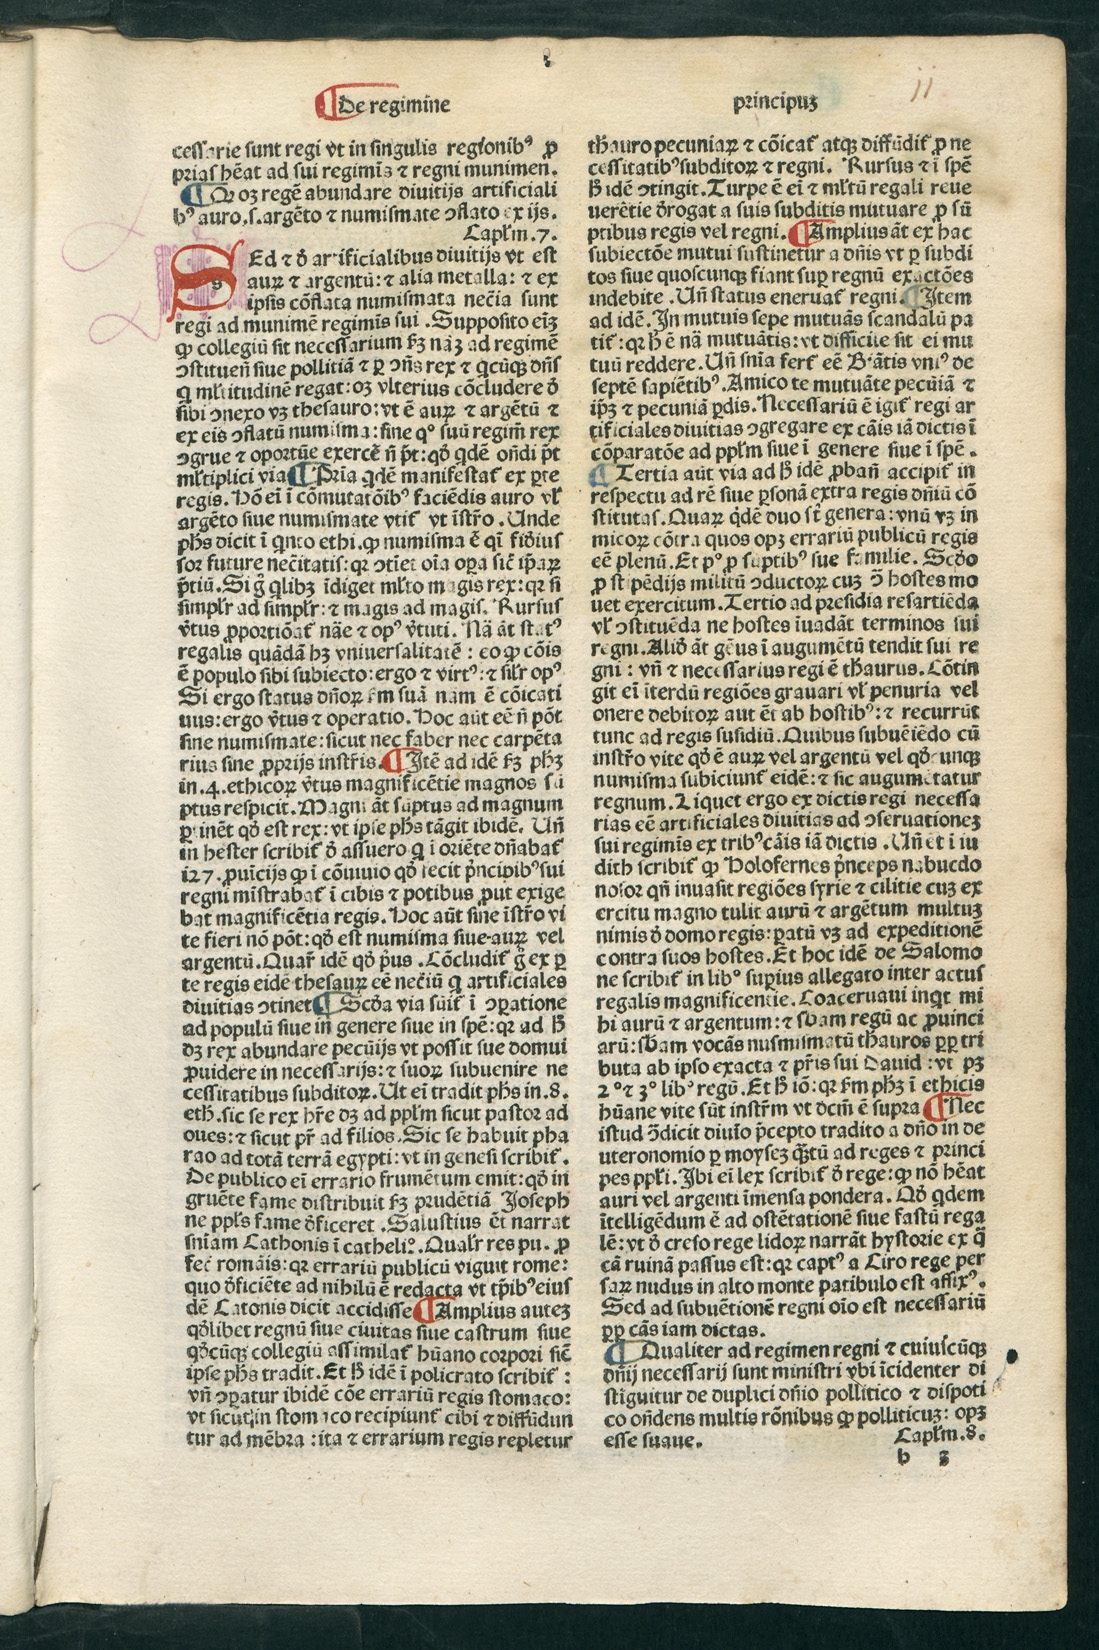 De regimine
principuʒ
ii
cessarie sunt regi vt in singulis regionibꝰ ꝓ
prias hēat ad sui regimīs ⁊ regni munimen.
¶ Qꝫ oꝫ regē abundare diuitijs artificiali
bꝰ auro.s.argēto ⁊ numismate ↄflato ex ijs.
Caplm.7.
SEd ⁊ ð artificialibus diuitijs vt est
auꝝ ⁊ argentū: ⁊ alia metalla: ⁊ ex
ipsis cōflata numismata nec̄ia sunt
regi ad munimē regimīs sui .Supposito eīꝫ
ꝙ collegiū sit necessarium ẜꝫ naꝫ ad regimē
ↄstituen̄ siue pollitiā ⁊ ꝑ ↄn̄s rex ⁊ q̇cūqꝫ dn̄s
q̇ mltitudinē regat: oꝫ vlterius cōcludere ð
sibi ↄnexo vꝫ thesauro: vt ē auꝝ ⁊ argētū ⁊
ex eis ↄflatū numisma: sine qͦ suū regim̄ rex
ↄgrue ⁊ oportūe exercē n̄ pt̄: qð q̇dē on̄di pt̄
mltiplici via ¶ Pria q̇dē manifestat̄ ex ꝑte
regis. Hō eī ī cōmutatōibꝰ faciēdis auro vl̄
argēto siue numismate vtit̄ vt īstr̄o .Unde
phs dicit ī q̇nto ethi.ꝙ numisma ē q̄ī fiðius
sor future nec̄itatis: qꝛ ↄtīet oīa oꝑa sic̄ ip̄aꝝ
p̄tiū.Si g̊ q̇libꝫ īdiget mlto magis rex: qꝛ si
simplr̄ ad simplr̄: ⁊ magis ad magis. Rursus
v̊tus ꝓportiōat̄ nāe ⁊ opꝰ v̊tuti. Nā āt statꝰ
regalis quādā hꝫ vniuersalitatē : eo ꝙ cōis
ē populo sibi subiecto: ergo ⁊ virtꝰ: ⁊ silr̄ opꝰ
Si ergo status dn̄oꝝ ẜm suā nam ē cōicati
uus: ergo v̊tus ⁊ operatio. Hoc aūt eē n̄ pōt
sine numismate: sicut nec faber nec carpēta
rius sine ꝓprijs instr̄is. ¶ Itē ad idē ẜꝫ phꝫ
in.4.ethicoꝝ v̊tus magnificētie magnos sū
ptus respicit. Magni āt sūptus ad magnum
ꝑtinēt qð est rex: vt ipse phs tāgit ibidē. Un̄
in hester scribit̄ ð assuero q̇ ī oriēte dn̄abat̄
127.ꝓuīcijs ꝙ ī cōuiuio qð fecit p̊ncipibꝰ sui
regni mīstrabat̄ ī cibis ⁊ potibus ꝓut exige
bat magnificētia regis. Hoc aūt sine īstr̄o vi
te fieri nō pōt: qð est numisma siue auꝝ vel
argentū.Quar̄ idē qð p̊us .Cōcludit̄ g̊ ex ꝑ
te regis eidē thesauꝝ eē nec̄iū q̇ artificiales
diuitias ↄtinet ¶ Scða via sūit̄ ī ↄꝑatione
ad populū siue in genere siue in spē: qꝛ ad ħ
dꝫ rex abundare pecūijs vt possit sue domui
ꝓuidere in necessarijs: ⁊ suoꝝ subuenire ne
cessitatibus subditoꝝ. Ut eī tradit phs in.8.
eth.sic se rex hr̄e dꝫ ad pplm sicut pastor ad
oues: ⁊ sicut pr̄ ad filios.Sic se habuit pha
rao ad totā terrā egypti: vt in genesi scribit̄.
De publico eī errario frumētum emit: qð in
gruēte fame distribuit ẜꝫ prudētiā Joseph
ne ppls fame ðficeret .Salustius ēt narrat
sn̄iam Cathonis ī catheliͦ. .Qualr̄ res pu. ꝓ
fec̄ romāis: qꝛ errariū publicū viguit rome:
quo ðficiēte ad nihilū ē redacta vt tp̄ibꝰ eius
dē Catonis dicit accidisse ¶ Amplius auteꝫ
qðlibet regnū siue ciuitas siue castrum siue
qðcūqꝫ collegiū assimilat̄ hūano corpori sic̄
ipse phs tradit. Et ħ idē ī policrato scribit̄ :
vn̄ ↄꝑatur ibidē cōe errariū regis stomaco:
vt sicut in stomaco recipiunt̄ cibi ⁊ diffūdun
tur ad mēbra : ita ⁊ errarium regis repletur
th̄auro pecuniaꝝ ⁊ cōicat̄ atqꝫ diffūdit̄ ꝓ ne
cessitatibꝰ subditoꝝ ⁊ regni. Rursus ⁊ ī spē
ħ idē ↄtingit. Turpe ē eī ⁊ mltū regali reue
uerētie ðrogat a suis subditis mutuare ꝓ sū
ptibus regis vel regni. ¶ Amplius āt ex hac
subiectōe mutui sustinetur a dn̄is vt ꝑ subdi
tos siue quoscunqꝫ fiant suꝑ regnū exactōes
indebite . Un̄ status eneruat̄ regni. ¶ Item
ad idē. In mutuis sepe mutuās scandalū pa
tit̄: qꝛ ħ ē nā mutuātis: vt difficile sit ei mu
tuū reddere. Un̄ sn̄ia fert̄ eē Biātis vniꝰ de
septē sapiētibꝰ .Amico te mutuāte pecūiā ⁊
ip̄ꝫ ⁊ pecuniā ꝑdis. Necessariū ē igit̄ regi ar
tificiales diuitias ↄgregare ex cāis iā dictis ī
cōparatōe ad pplm siue ī genere siue ī spē .
¶ Tertia aūt via ad ħ idē ꝓban̄ accipit̄ in
respectu ad rē siue ꝑsonā extra regis dn̄iū cō
stitutas. Quaꝝ q̇dē duo st̄ genera: vnū vꝫ in
micoꝝ cōtra quos opꝫ errariū publicū regis
eē plenū. Et pͦ ꝓ sūptibꝰ sue familie. Scðo
ꝓ stipēdijs militū ↄductoꝝ cuꝫ ↄ̄ hostes mo
uet exercitum.Tertio ad presidia resartiēda
vl̄ ↄstituēda ne hostes īuadāt terminos sui
regni. Alið āt gēus ī augumētū tendit sui re
gni : vn̄ ⁊ necessarius regi ē th̄aurus. Cōtin
git eī īterdū regiōes grauari vl̄ penuria vel
onere debitoꝝ aut ēt ab hostibꝰ: ⁊ recurrūt
tunc ad regis susidiū. Quibus subuēiēdo cū
instr̄o vite qð ē auꝝ vel argentū vel qðcunqꝫ
numisma subiciunt̄ eidē: ⁊ sic augumētatur
regnum. Liquet ergo ex dictis regi necessa
rias eē artificiales diuitias ad ↄseruationeꝫ
sui regimīs ex tribꝰ cāis iā dictis . Un̄ et ī iu
dith scribit̄ ꝙ Holofernes p̊nceps nabucdo
nosor qn̄ inuasit regiōes syrie ⁊ cilitie cuꝫ ex
ercitu magno tulit aurū ⁊ argētum multuꝫ
nimis ð domo regis: ꝑatū vꝫ ad expeditionē
contra suos hostes. Et hoc idē de Salomo
ne scribit̄ in libͦ suꝑius allegato inter actus
regalis magnificentie. Coaceruaui inq̇t mi
hi aurū ⁊ argentum: ⁊ sb̄am regū ac ꝓuinci
arū: sb̄am vocās nusmismatū th̄auros ꝑꝑ tri
buta ab ipso exacta ⁊ pr̄is sui Dauid : vt pꝫ
2ͦ ⁊ 3ͦ libͦ regū. Et ħ iō: qꝛ ẜm phꝫ ī ethicis
hūane vite sūt instr̄m vt dcm̄ ē supra ¶ Nec
istud ↄ̄dicit diuīo p̄cepto tradito a dn̄o in de
uteronomio ꝑ moyseꝫ q̄tū ad reges ⁊ princi
pes ppli. Ibi eī lex scribit̄ ð rege: ꝙ nō hēat
auri vel argenti īmensa pondera. Qð q̇dem
ītelligēdum ē ad ostētationē siue fastū rega
lē: vt ð creso rege lidoꝝ narrāt hystorie ex q̄
cā ruinā passus est: qꝛ captꝰ a Ciro rege per
saꝝ nudus in alto monte patibulo est affixꝰ.
Sed ad subuētionē regni oīo est necessariū
ꝓꝑ cās iam dictas.
¶ Qualiter ad regimen regni ⁊ cuiuscūqꝫ
dn̄ij necessarij sunt ministri vbi īcidenter di
stīguitur de duplici dn̄io pollitico ⁊ dispoti
co on̄dens multis rōnibus ꝙ polliticuꝫ: opꝫ
esse suaue.
Caplm.8.
b 3